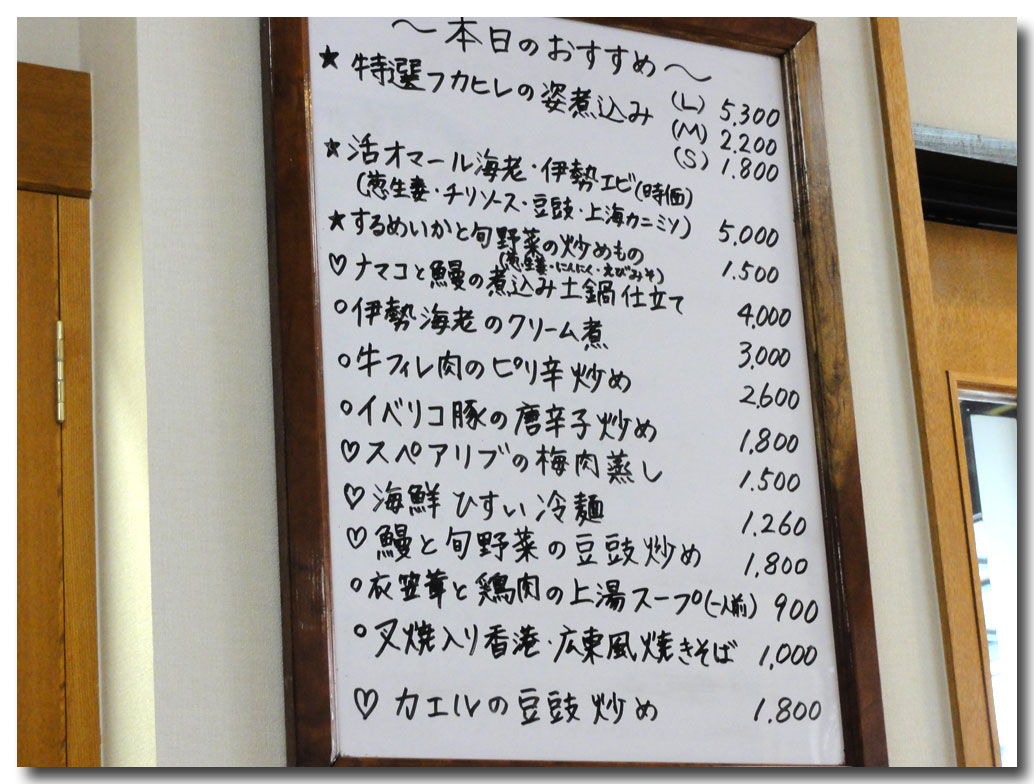 〜本日のおすすめ〜
★特選フカヒレの姿煮込み (L) 5,300
(M) 2,200
(S) 1.800
★活オマール海老・伊勢エビ(時価)
(葱生姜・チリソース・豆豉・上海カニミソ) 5,000
★するめいかと旬野菜の炒めもの 1.500
(葱生姜・にんにく・えびみそ)
♡ナマコと鰻の煮込み土鍋仕立て 4,000
○伊勢海老のクリーム煮 3,000
○牛フィレ肉のピリ辛炒め 2,600
○イベリコ豚の唐辛子炒め 1,800
♡スペアリブの梅肉蒸し 1.500
♡海鮮ひすい冷麺 1.260
♡鰻と旬野菜の豆豉炒め 1,800
○衣笠茸と鶏肉の上湯スープ(一人前) 900
○叉焼入り香港・広東風焼きそば 1,000
♡カエルの豆豉炒め 1.800